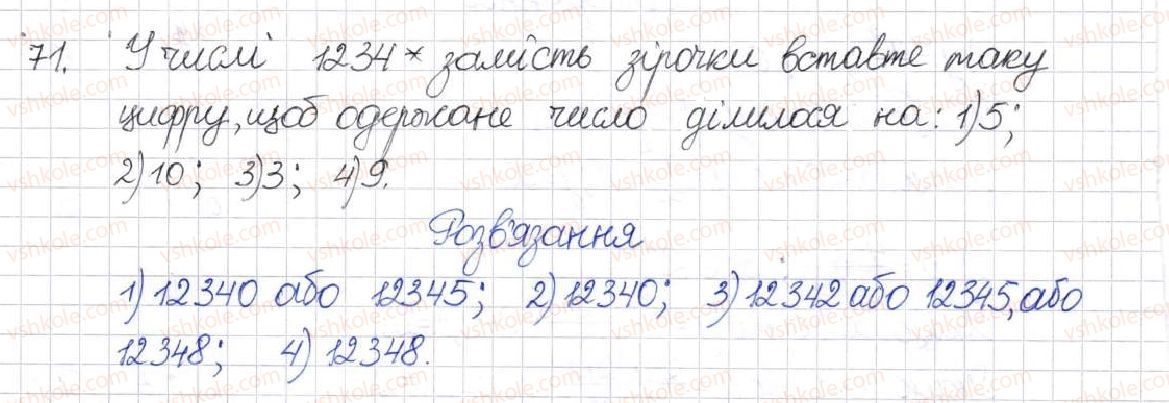 71. У числі 1234* замість зірочки вставте таку
цифру, щоб одержане число ділилося на: 1) 5;
2) 10; 3) 3; 4) 9.
Розв'язання
1) 12340 або 12345; 2) 12340; 3) 12342 або 12345, або
12348; 4) 12348.